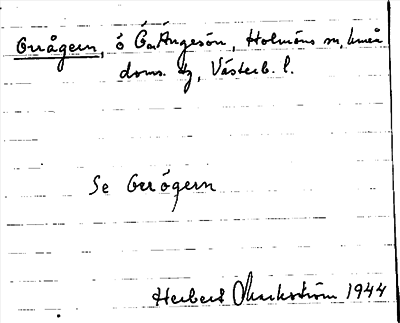 Orrågern, ö Ö. Ängesön, Holmöns sn, Umeå
doms. tg, Västerb. l.
Se Orrögern
Herbert Markström 1944